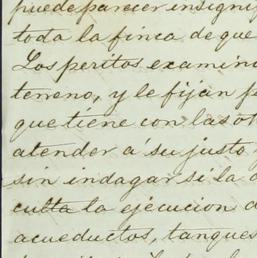 puede parecer insignifi
toda la finca de que
Los peritos examina
terreno, y le fijan
que tiene con las ot
atender á su justo
sin indagar si la
culta la ejecucion d
acueductos, tanques